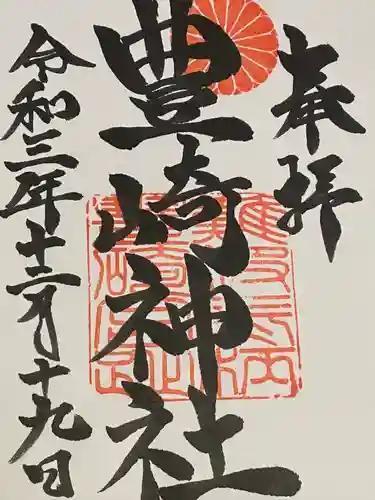 奉拝
豊崎神社
令和三年十二月十九日